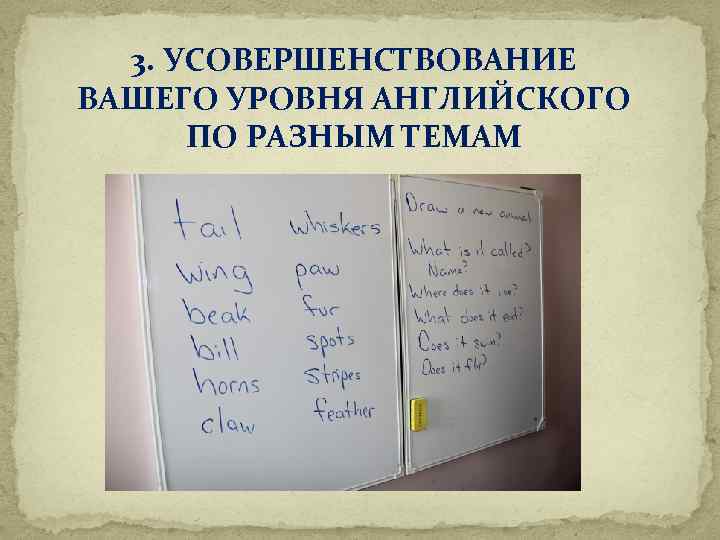 3. УСОВЕРШЕНСТВОВАНИЕ
ВАШЕГО УРОВНЯ АНГЛИЙСКОГО
ПО РАЗНЫМ ТЕМАМ
tail whiskers
wing paw
beak fur
bill spots
horns stripes
claw feather
Draw a new animal
What is it called?
Name?
Where does it live?
What does it eat?
Does it swim?
Does it fly?